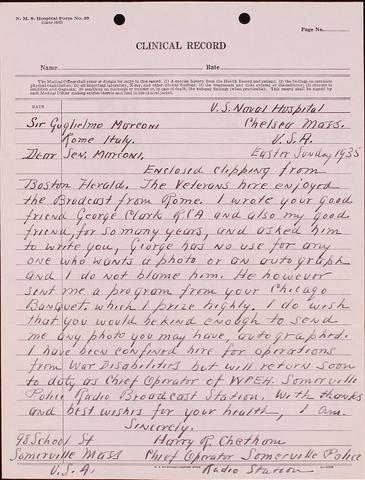 N. M. S. Hospital Form No. 39
Page No.
CLINICAL RECORD
Name Rate
DATE
U.S. Naval Hospital
Sir Guglielmo Marconi Chelsea Mass.
Rome Italy. U.S.A.
Dear Sen. Marconi, Easter Sunday 1935
Enclosed clipping from
Boston Herald. The Veterans here enjoyed
the Brodcast from Rome. I wrote your Good
friend George Clark RCA and also my good
friend, for so many years, and asked him
to write you, George has no use for any
one who wants a photo or an autograph
and I do not blame him. He however
sent me a program from your Chicago
Banquet, which I prize highly. I do wish
that you would be kind enough to send
me any photo you may have, autographed.
I have been confined here for operations
from War Disabilities but will return soon
to duty as Chief Operator of WPEH. Somerville
Police Radio Broadcast Station. With thanks
and best wishes for your health, I am.
Sincerely.
98 School St Harry R. Chetham
Somerville Mass Chief Operator Somerville Police
U.S.A. Radio Station